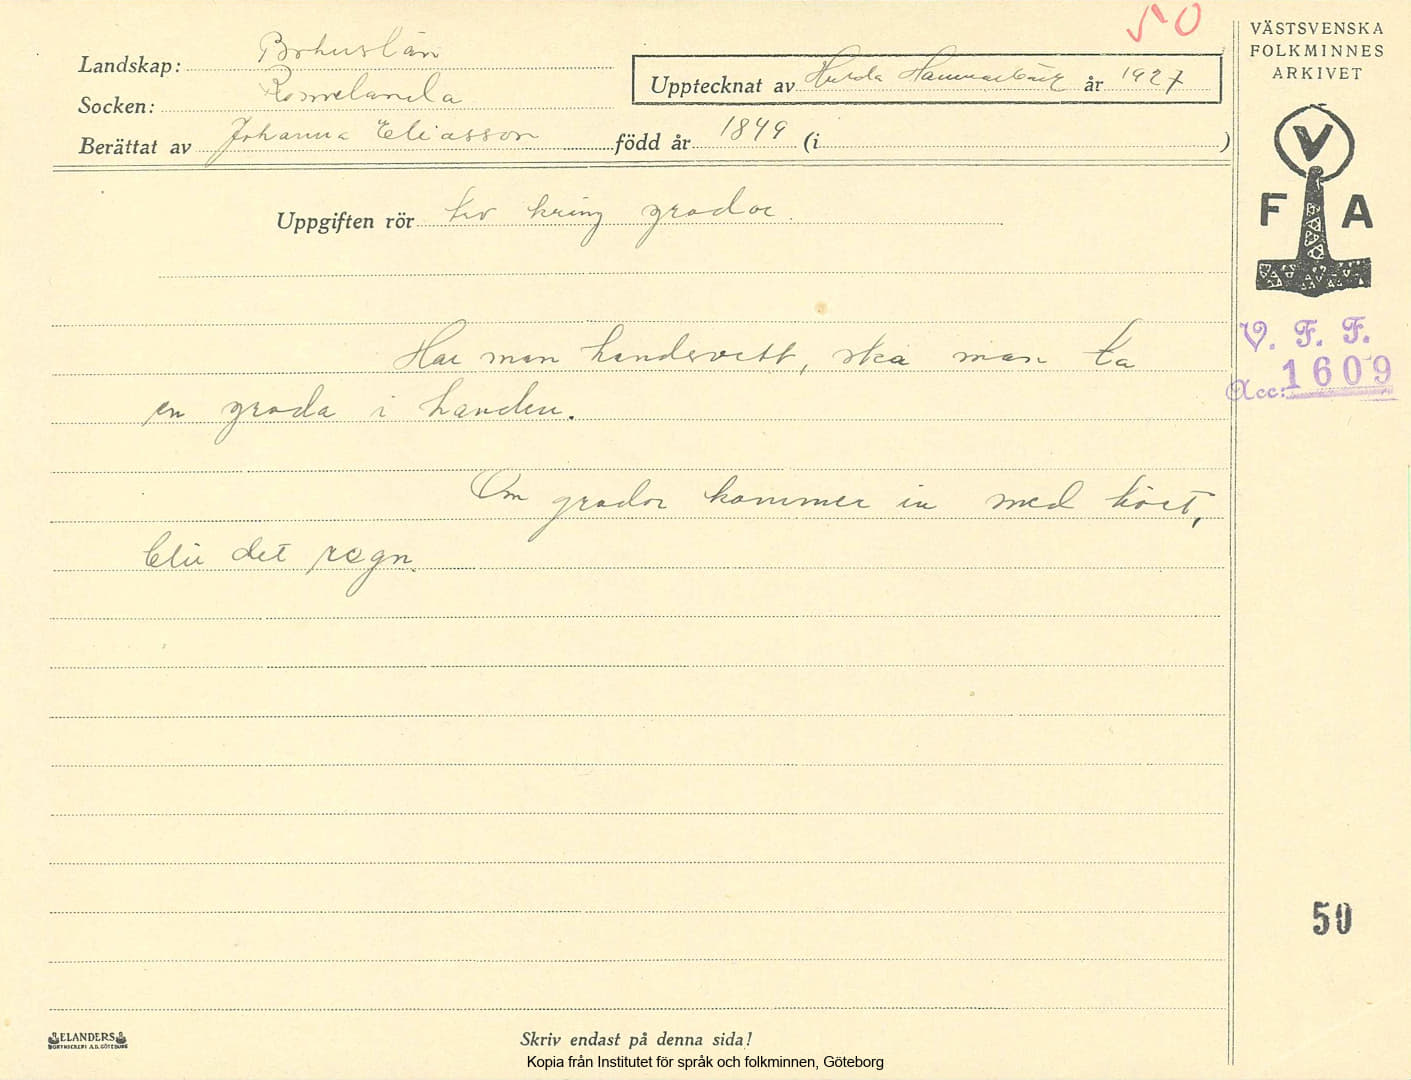 50
VÄSTSVENSKA
FOLKMINNES
ARKIVET
Landskap: Bohuslän
Socken: Romelanda
Upptecknat av Hulda Hammarbäck år 1927
Berättat av Johanna Eliasson född år 1849 (i )
Uppgiften rör tro kring grodor.
V
F A
Har man handsvett, ska man ta
en groda i handen.
V. F. F.
Acc: 1609
Om grodor kommer in med höet,
blir det regn.
50
ELANDERS
BOKTRYCKERI A.B. GÖTEBORG
Skriv endast på denna sida!
Kopia från Institutet för språk och folkminnen, Göteborg